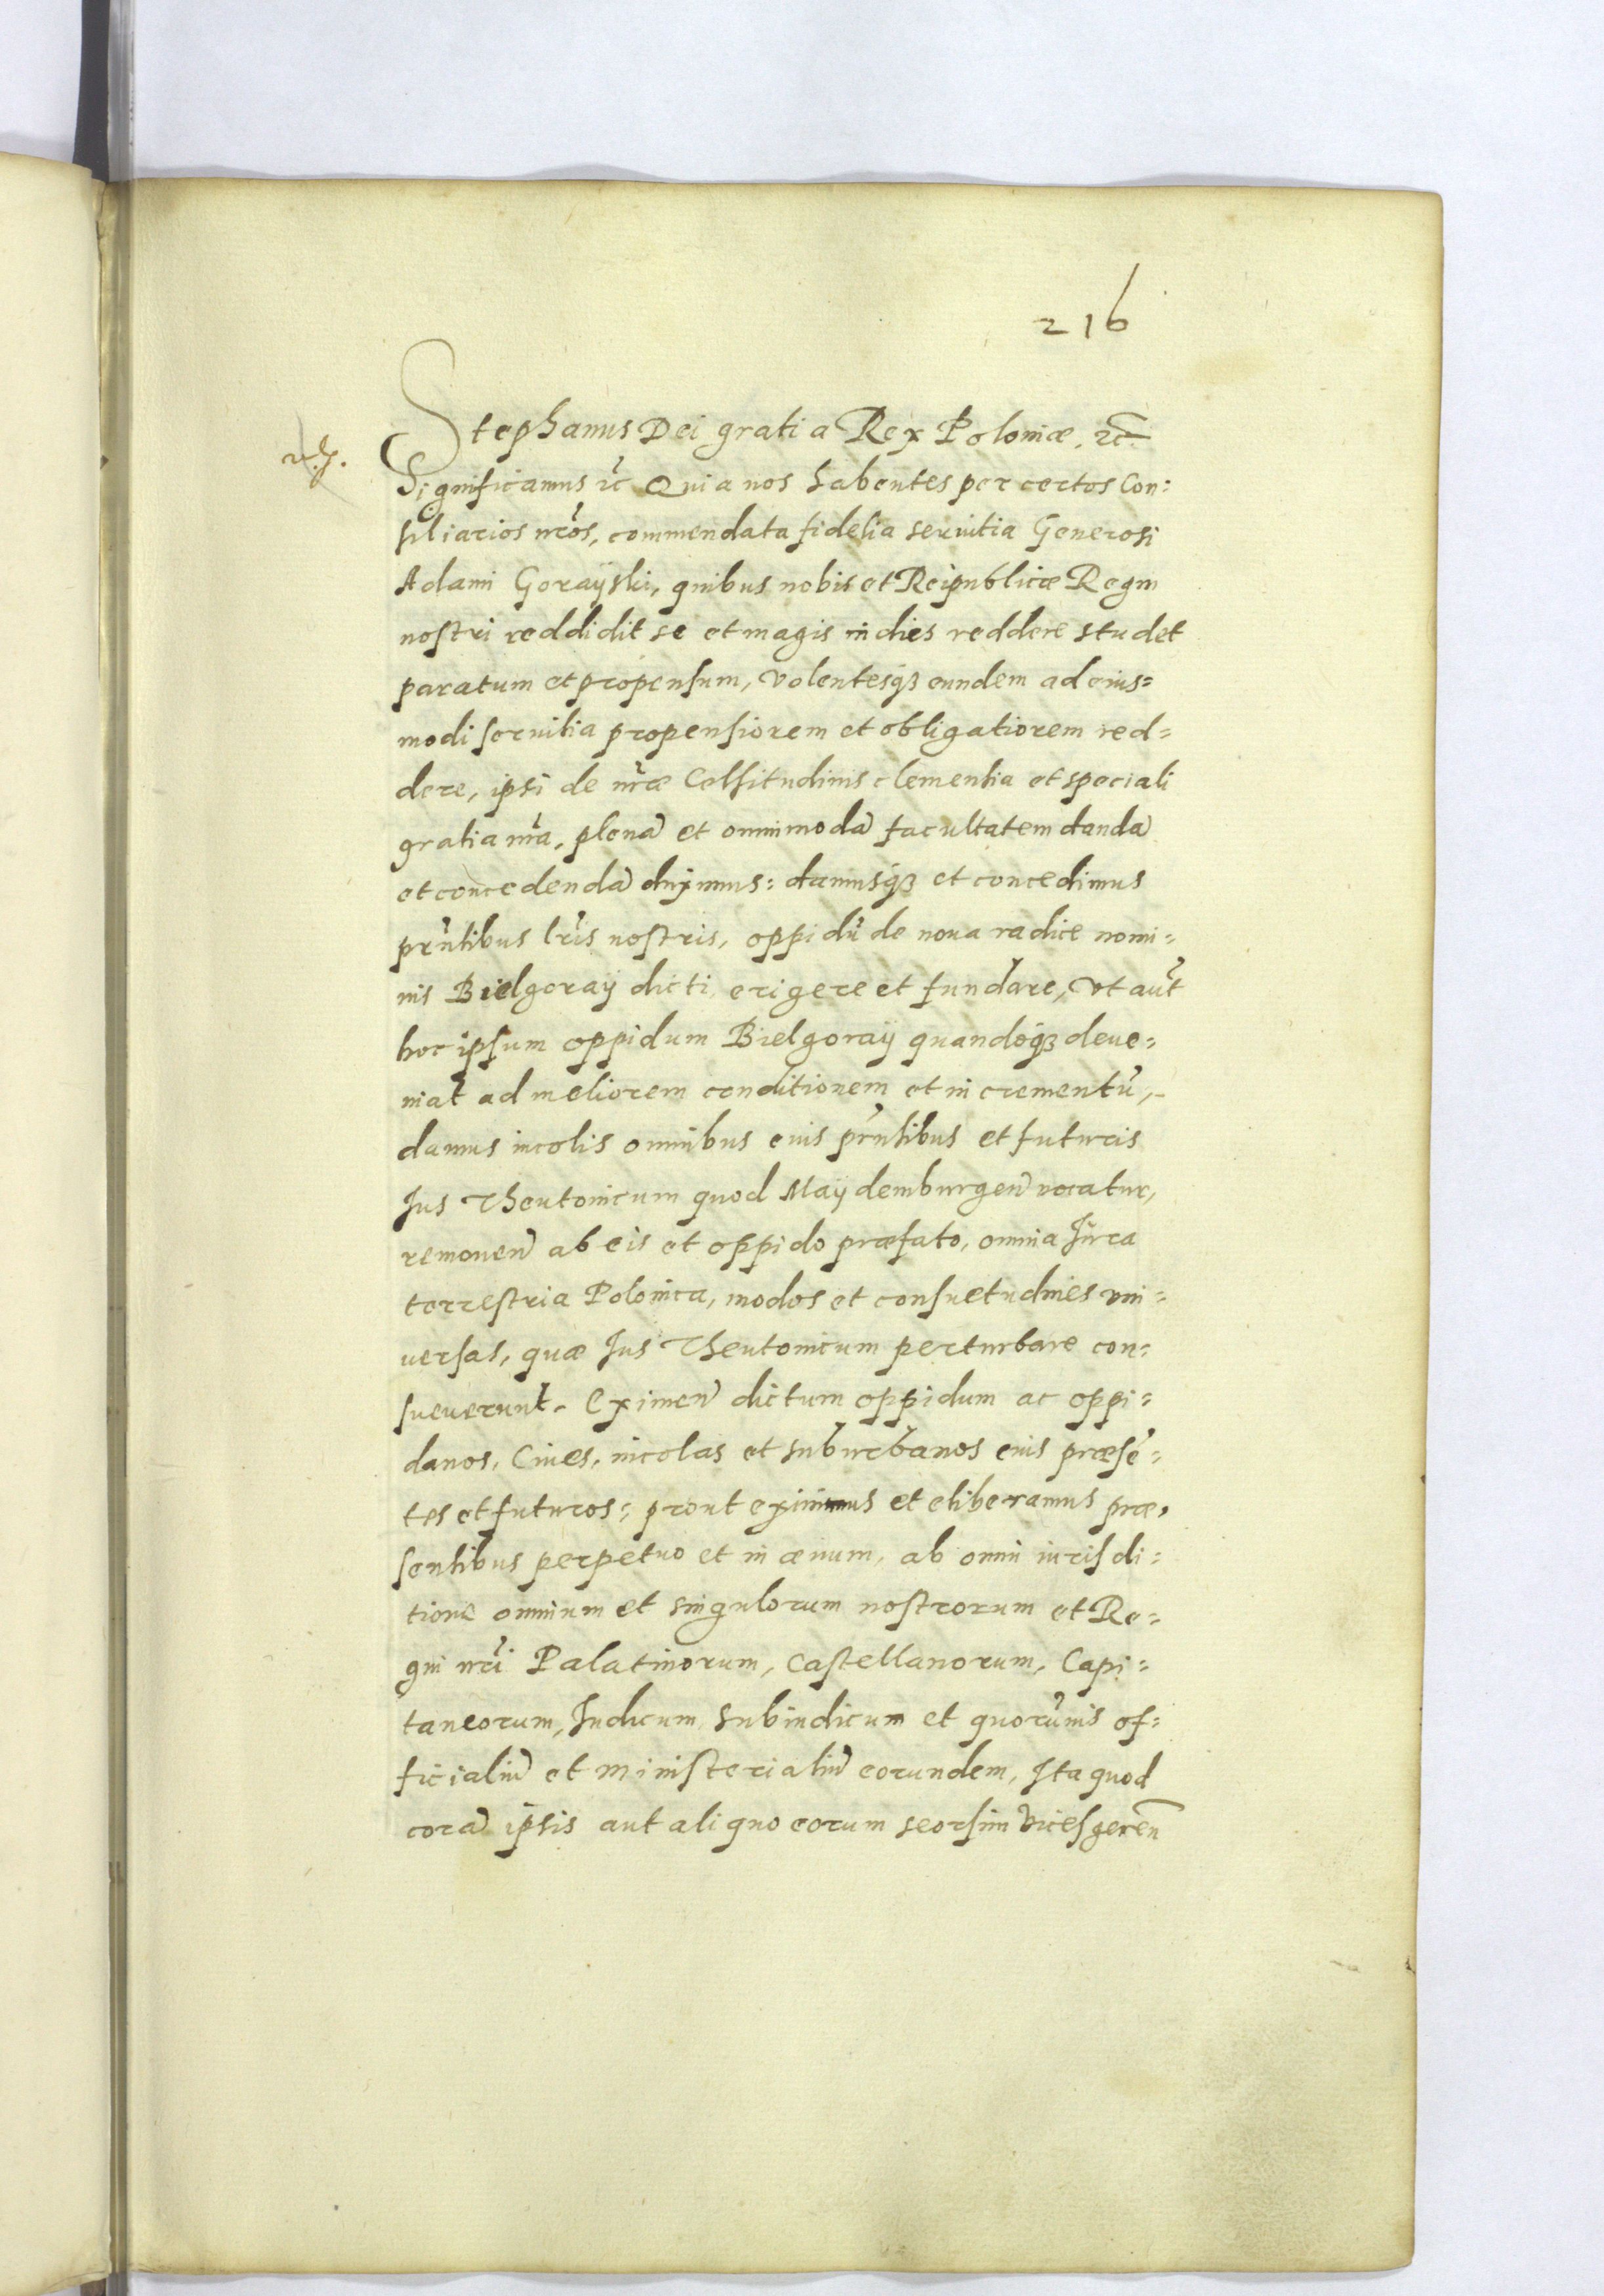 216
Stephanus Dei gratia Rex Poloniæ. ꝛc̃.
Significamus ꝛc̃ Quia nos habentes per certos Con=
siliarios nr̃os, commendata fidelia seruitia Generosi
Adami Goraÿski, quibus nobis et Reipublicæ Regni
nostri reddidit se et magis in dies reddere studet
paratum et propensum, volentesqꝫ eundem ad eius=
modi seruitia propensiorem et obligatiorem red=
dere, ipsi de nr̃æ Celsitudinis clementia et speciali
gratia nr̃a, plenã et omnimodã facultatem dandã
et concedendã duximus: damusqꝫ et concedimus
prñtibus lr̃is nostris, oppidũ de noua radice nomi=
nis Bielgoraÿ dicti erigere et fundare, Vt aũt
hoc ipsum oppidum Bielgoraÿ quandoqꝫ deue=
niat ad meliorem conditionem et incrementũ,
damus incolis omnibus eius prñtibus et futuris
Jus Theutonicum quod Maÿdemburgeñ vocatur,
remoueñ ab eis et oppido præfato, omnia Jura
terrestria Polonica, modos et consuetudines vni=
uersas, quæ Jus Theutonicum perturbare con=
sueuerunt. Eximeñ dictum oppidum ac oppi=
danos, Ciues, incolas et suburbanos eius præsẽ=
tes et futuros: prout eximimus et eliberamus præ=
sentibus perpetuo et in æuum, ab omni iurisdi=
tione omnium et singulorum nostrorum et Re=
gni nr̃i Palatinorum, Castellanorum, Capi=
taneorum, Judicum Subiudicum et quorũuis of=
ficialiũ et ministerialiũ eorundem, Ita quod
corã ipsis aut aliquo eorum seorsim vicesgereñ